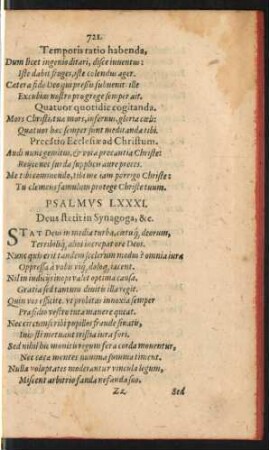 721.
Temporis ratio habenda,
Dum licet ingenio ditari, disce iuuentus:
Iste dabit fruges, iste colendus ager.
Cetera fide Deo qui presto
Excubias nostro pro grege semper ait.
Quatuor quotidie cogitanda.
Mors Christi, tua mors, infernus, gloria cœli:
Quatuor hæc semper sunt meditanda tibi.
Precatio Ecclesiæ ad Christum.
Audi nunc gemitus, & vota precantia Christe:
Reijce nec surda supplicis aure preces.
Me tibi commendo, tibi me iam porrigo Christe:
Tu clemens famulum protege Christe tuum.
PSALMVS LXXXI.
Deus stetit in Synagoga, &c.
STAT Deus in media turba, cœtuq́, deorum,
Terribiliq́, alios increpat ore Deus.
Nunc quis erit tandem scelerum modus? omnia iura
Oppressa à vobis viq́, doloq́, iacent.
Nil in iudicijs inopi valet optima causa.
Gratia sed tantum diuitis illa regit.
Quin vos efficite, vt probitas innoxia semper
Præsidio vestro tuta manere queat.
Nec circumscribi pupillos fraude sinatis,
Iniusti metuant tristia iura fori.
Sed nihil hic monitis regum fera corda mouentur,
Nec cæca mentes numina summa timent.
Nulla voluptates moderantur vincula legum,
Miscent arbitrio fanda nefanda suo.
Zz Sed